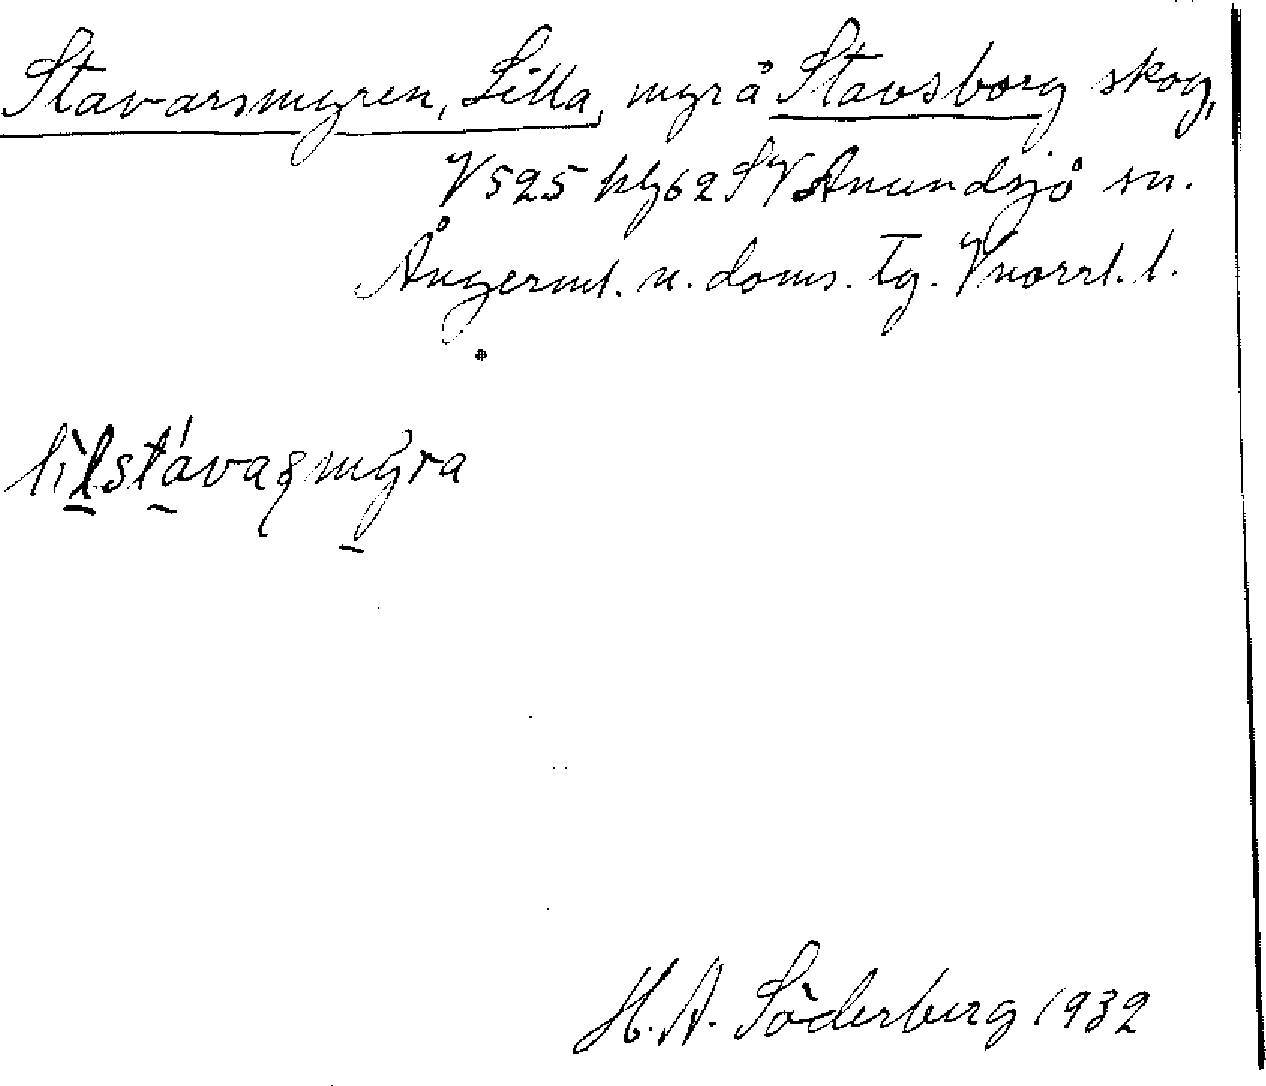 Stavarsmyren, Lilla, myr å Stavsborg skog,
V 525 hg 62 SV Anundsjö sn.
Ångerml. n. doms. Tg. Vnorrl. l.
lilstávaʂmyra
H. A. Söderberg 1932